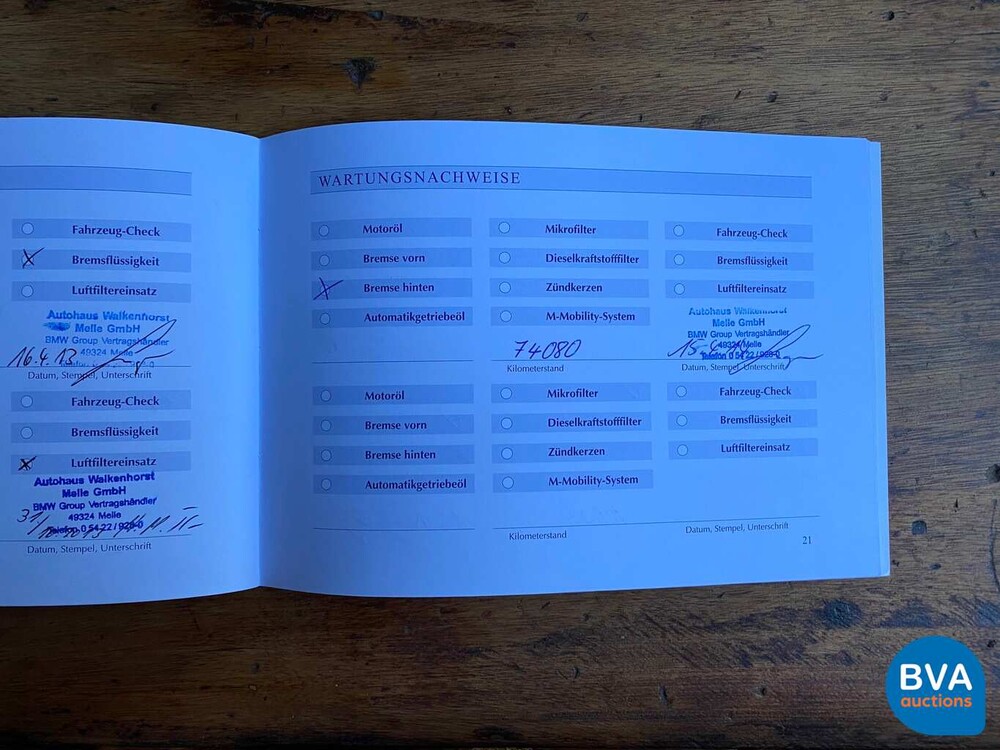 Fahrzeug-Check
Bremsflüssigkeit
Luftfiltereinsatz
Autohaus Walkenhorst
Melle GmbH
BMW Group Vertragshändler
49324 Melle
16.4.13
Datum, Stempel, Unterschrift
Fahrzeug-Check
Bremsflüssigkeit
Luftfiltereinsatz
Autohaus Walkenhorst
Melle GmbH
BMW Group Vertragshändler
49324 Melle
Telefon 0 54 22 / 929-0
Datum, Stempel, Unterschrift
WARTUNGSNACHWEISE
Motoröl Mikrofilter Fahrzeug-Check
Bremse vorn Dieselkraftstofffilter Bremsflüssigkeit
Bremse hinten Zündkerzen Luftfiltereinsatz
Automatikgetriebeöl M-Mobility-System
Autohaus Walkenhorst
Melle GmbH
BMW Group Vertragshändler
49324 Melle
Telefon 0 54 22 / 929-0
74080
Kilometerstand Datum, Stempel, Unterschrift
Motoröl Mikrofilter Fahrzeug-Check
Bremse vorn Dieselkraftstofffilter Bremsflüssigkeit
Bremse hinten Zündkerzen Luftfiltereinsatz
Automatikgetriebeöl M-Mobility-System
Kilometerstand Datum, Stempel, Unterschrift
21
BVA
auctions